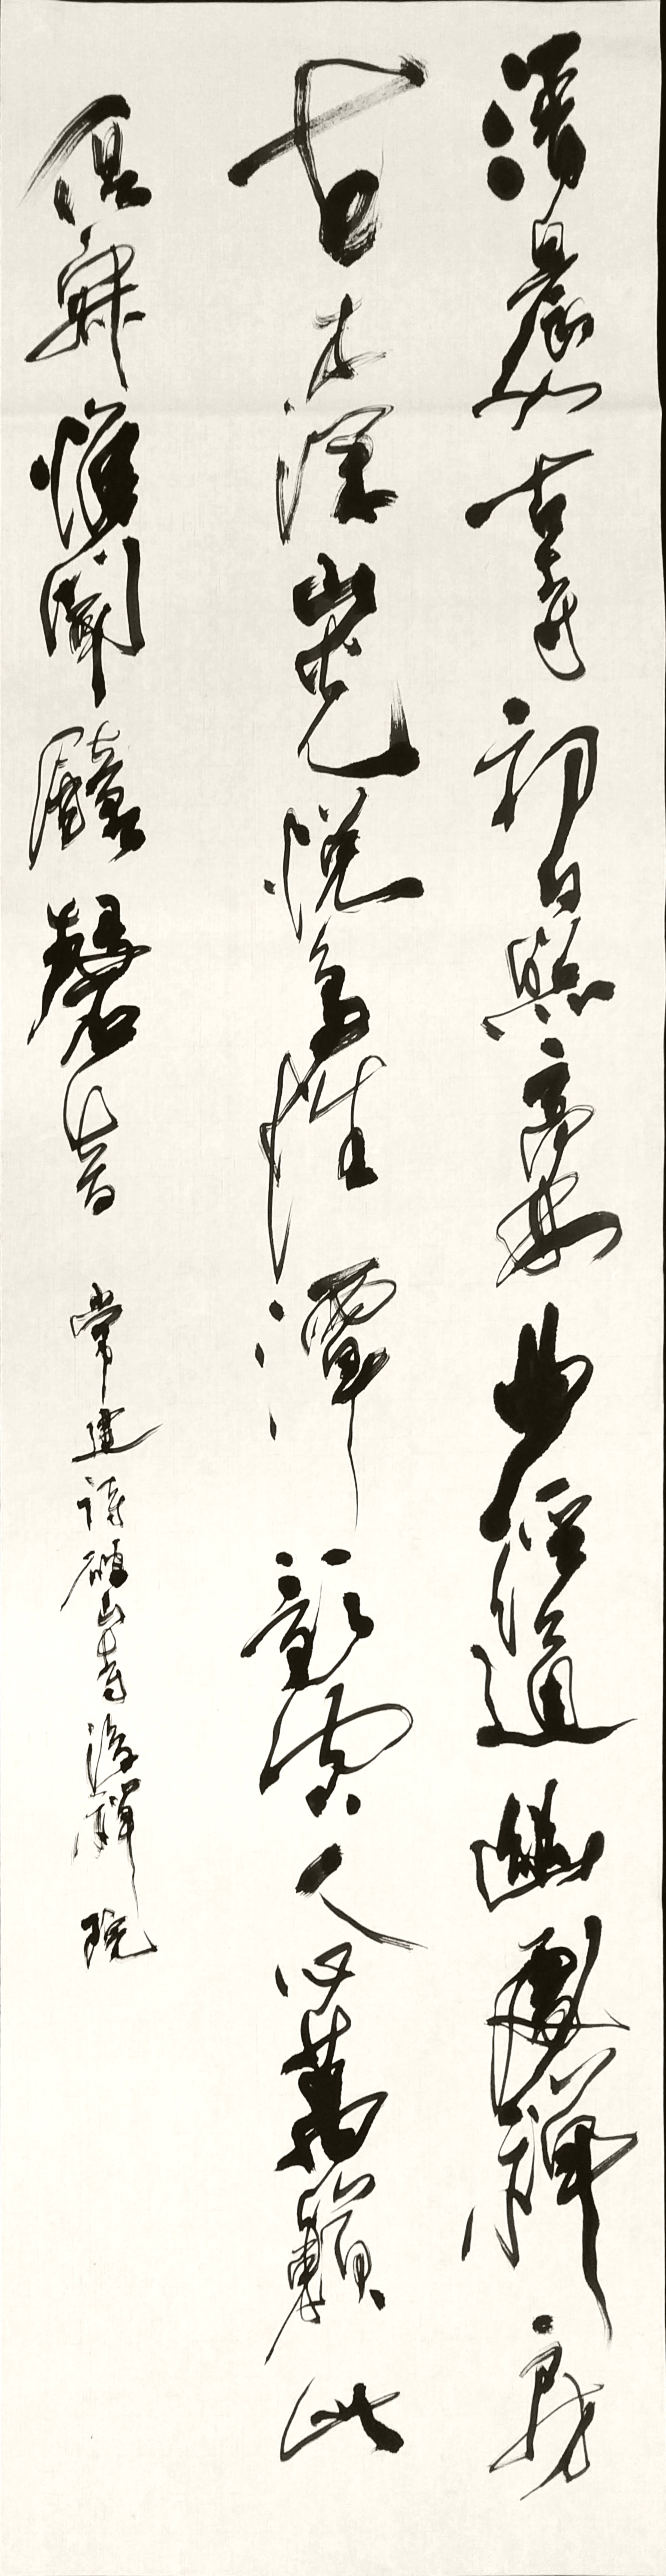 清晨入古寺初日照高林曲徑通幽處禪房
古木深山光悅鳥性潭影空人心萬籟此
俱寂惟聞鐘磬音 常建詩破山寺後禪院